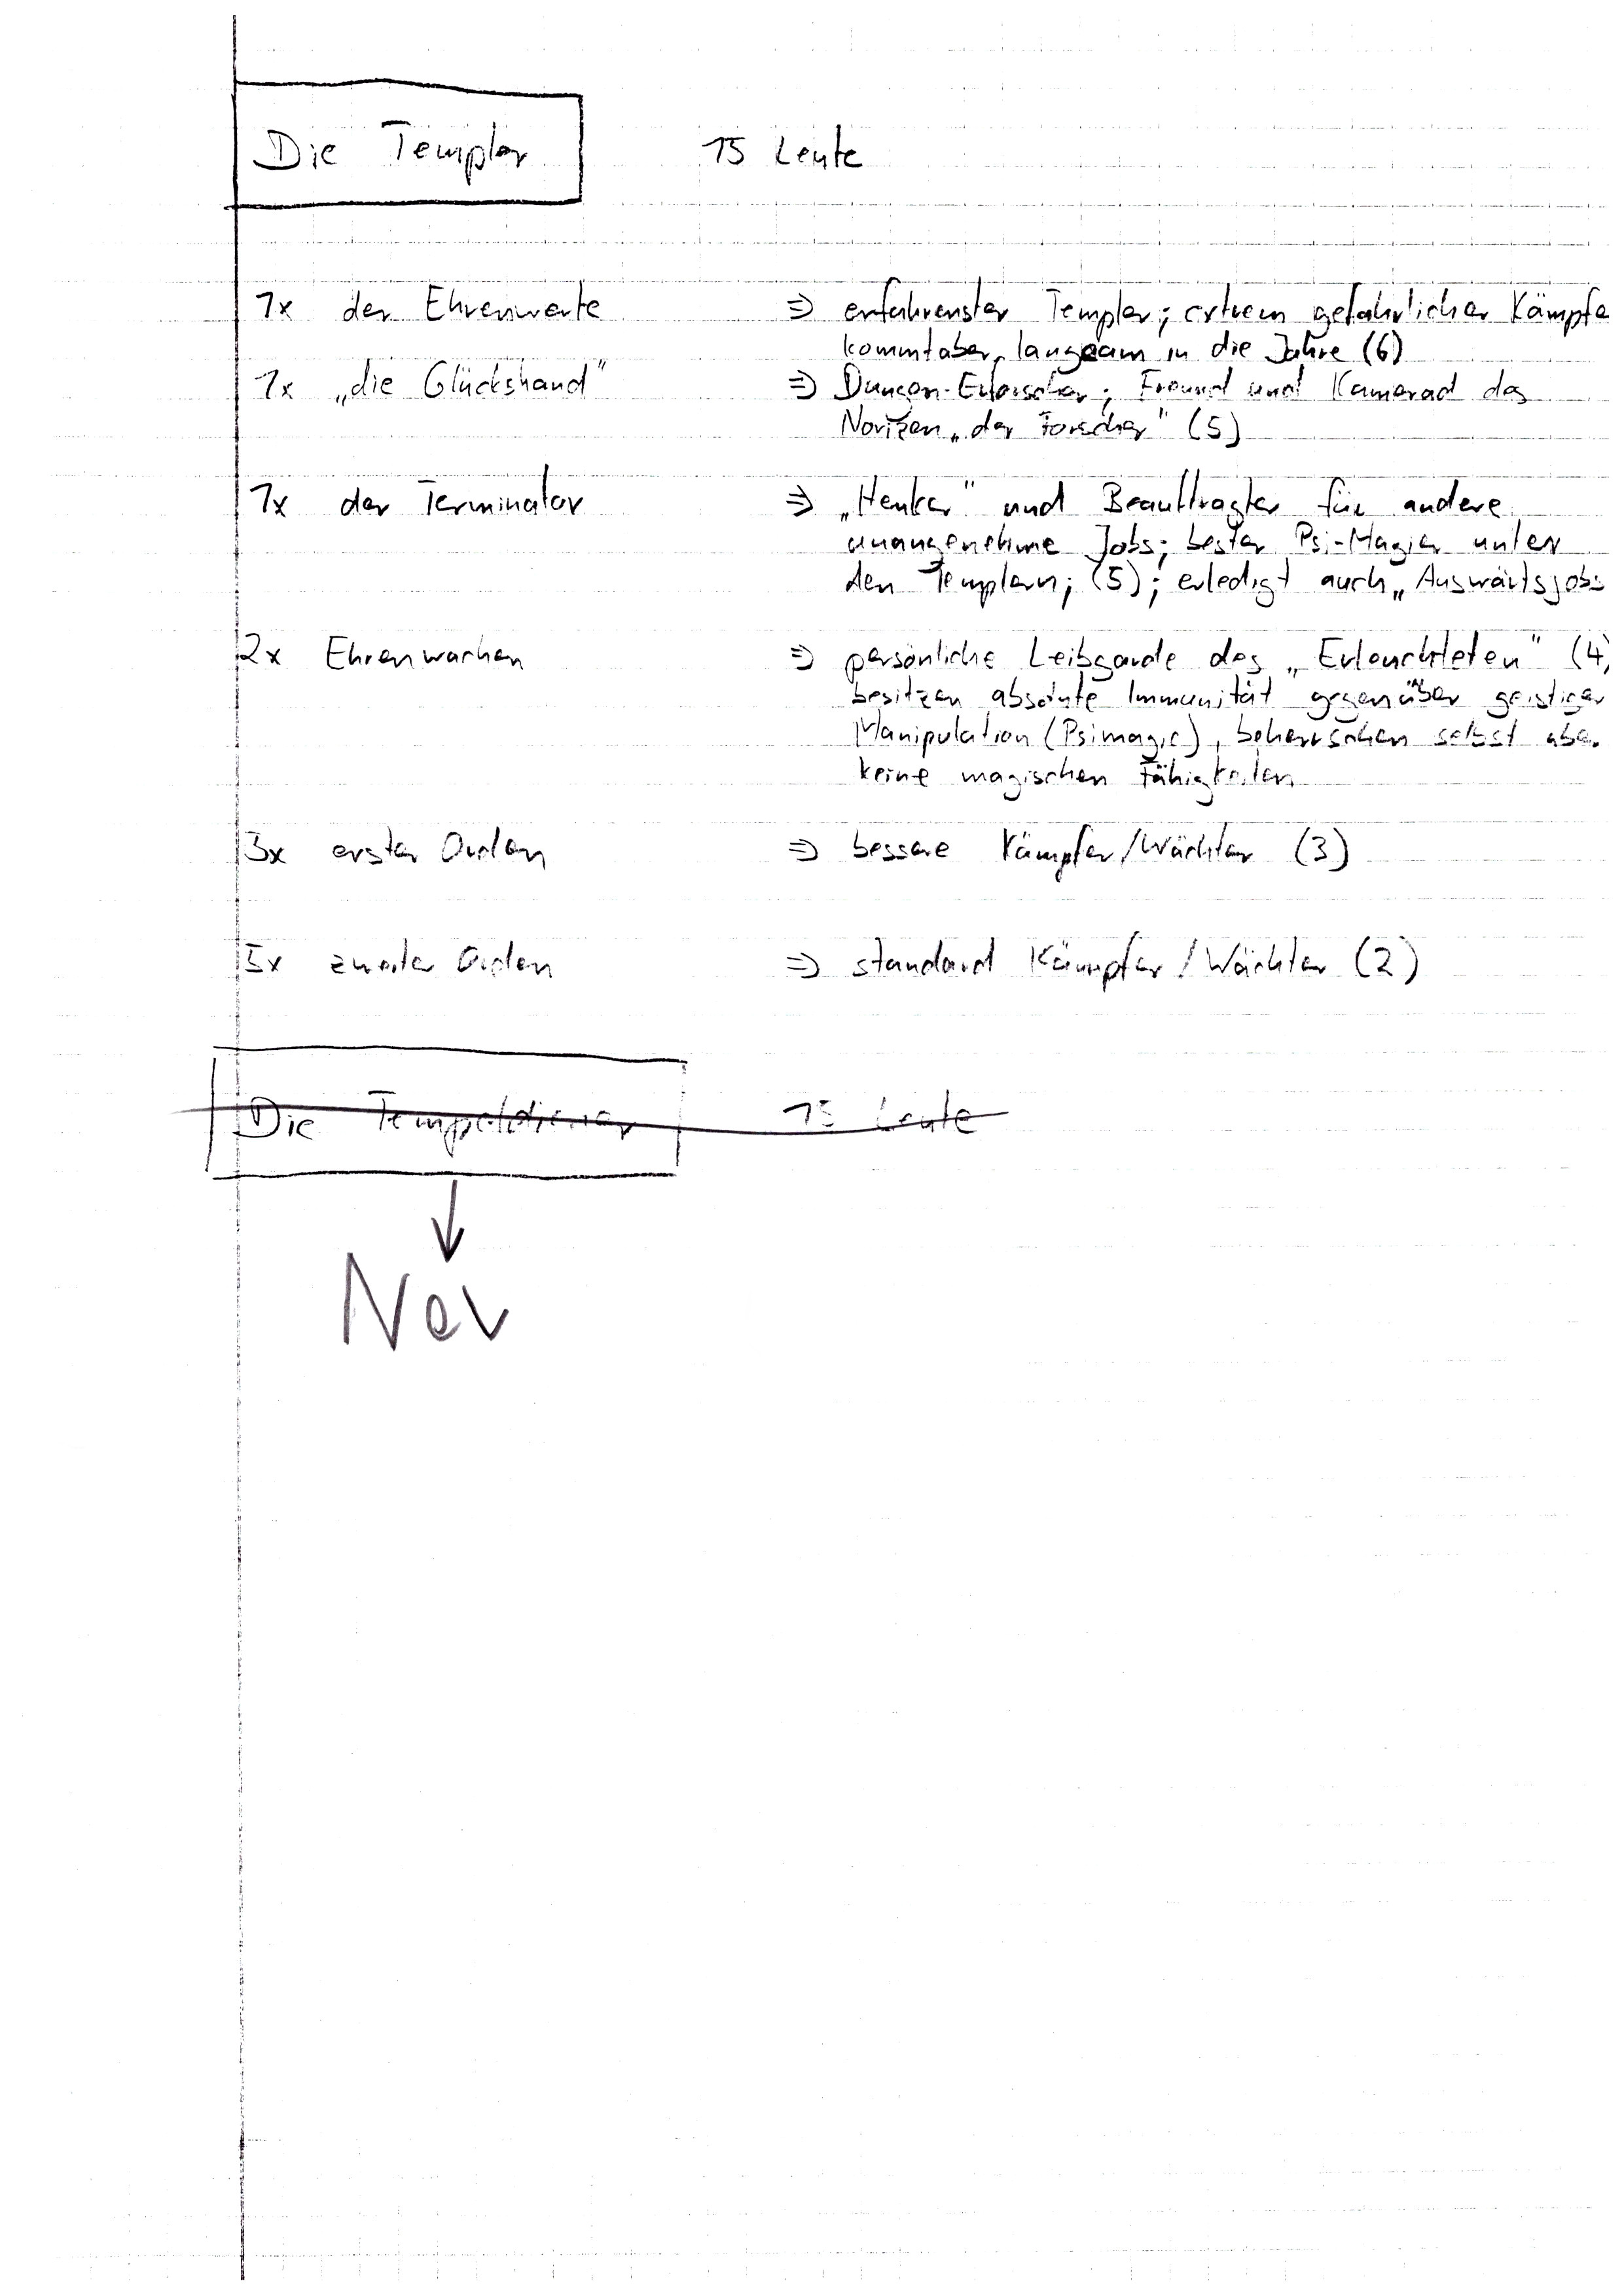 Die Templer 15 Leute
1x der Ehrenwerte => erfahrenster Templer; extrem gefährlicher Kämpfe
kommt aber langsam in die Jahre (6)
1x „die Glückshand" => Freund und Kamerad des
Novizen „der Forscher" (5)
1x der Terminator => „Henker" und Beauftragter für andere
unangenehme Jobs; bester Psi-Magier unter
den Templern; (5); erledigt auch „Auswärtsjobs
2x Ehrenwachen => persönliche Leibgarde des „Erleuchteten" (4)
besitzen absolute Immunität gegenüber geistiger
Manipulation (Psimagie), beherrschen selbst aber
keine magischen Fähigkeiten
erster Orden => bessere Kämpfer/Wächter (3)
5x zweiter Orden => standard Kämpfer/Wächter (2)
Die Tempeldiener 15 Leute
↓
Neu